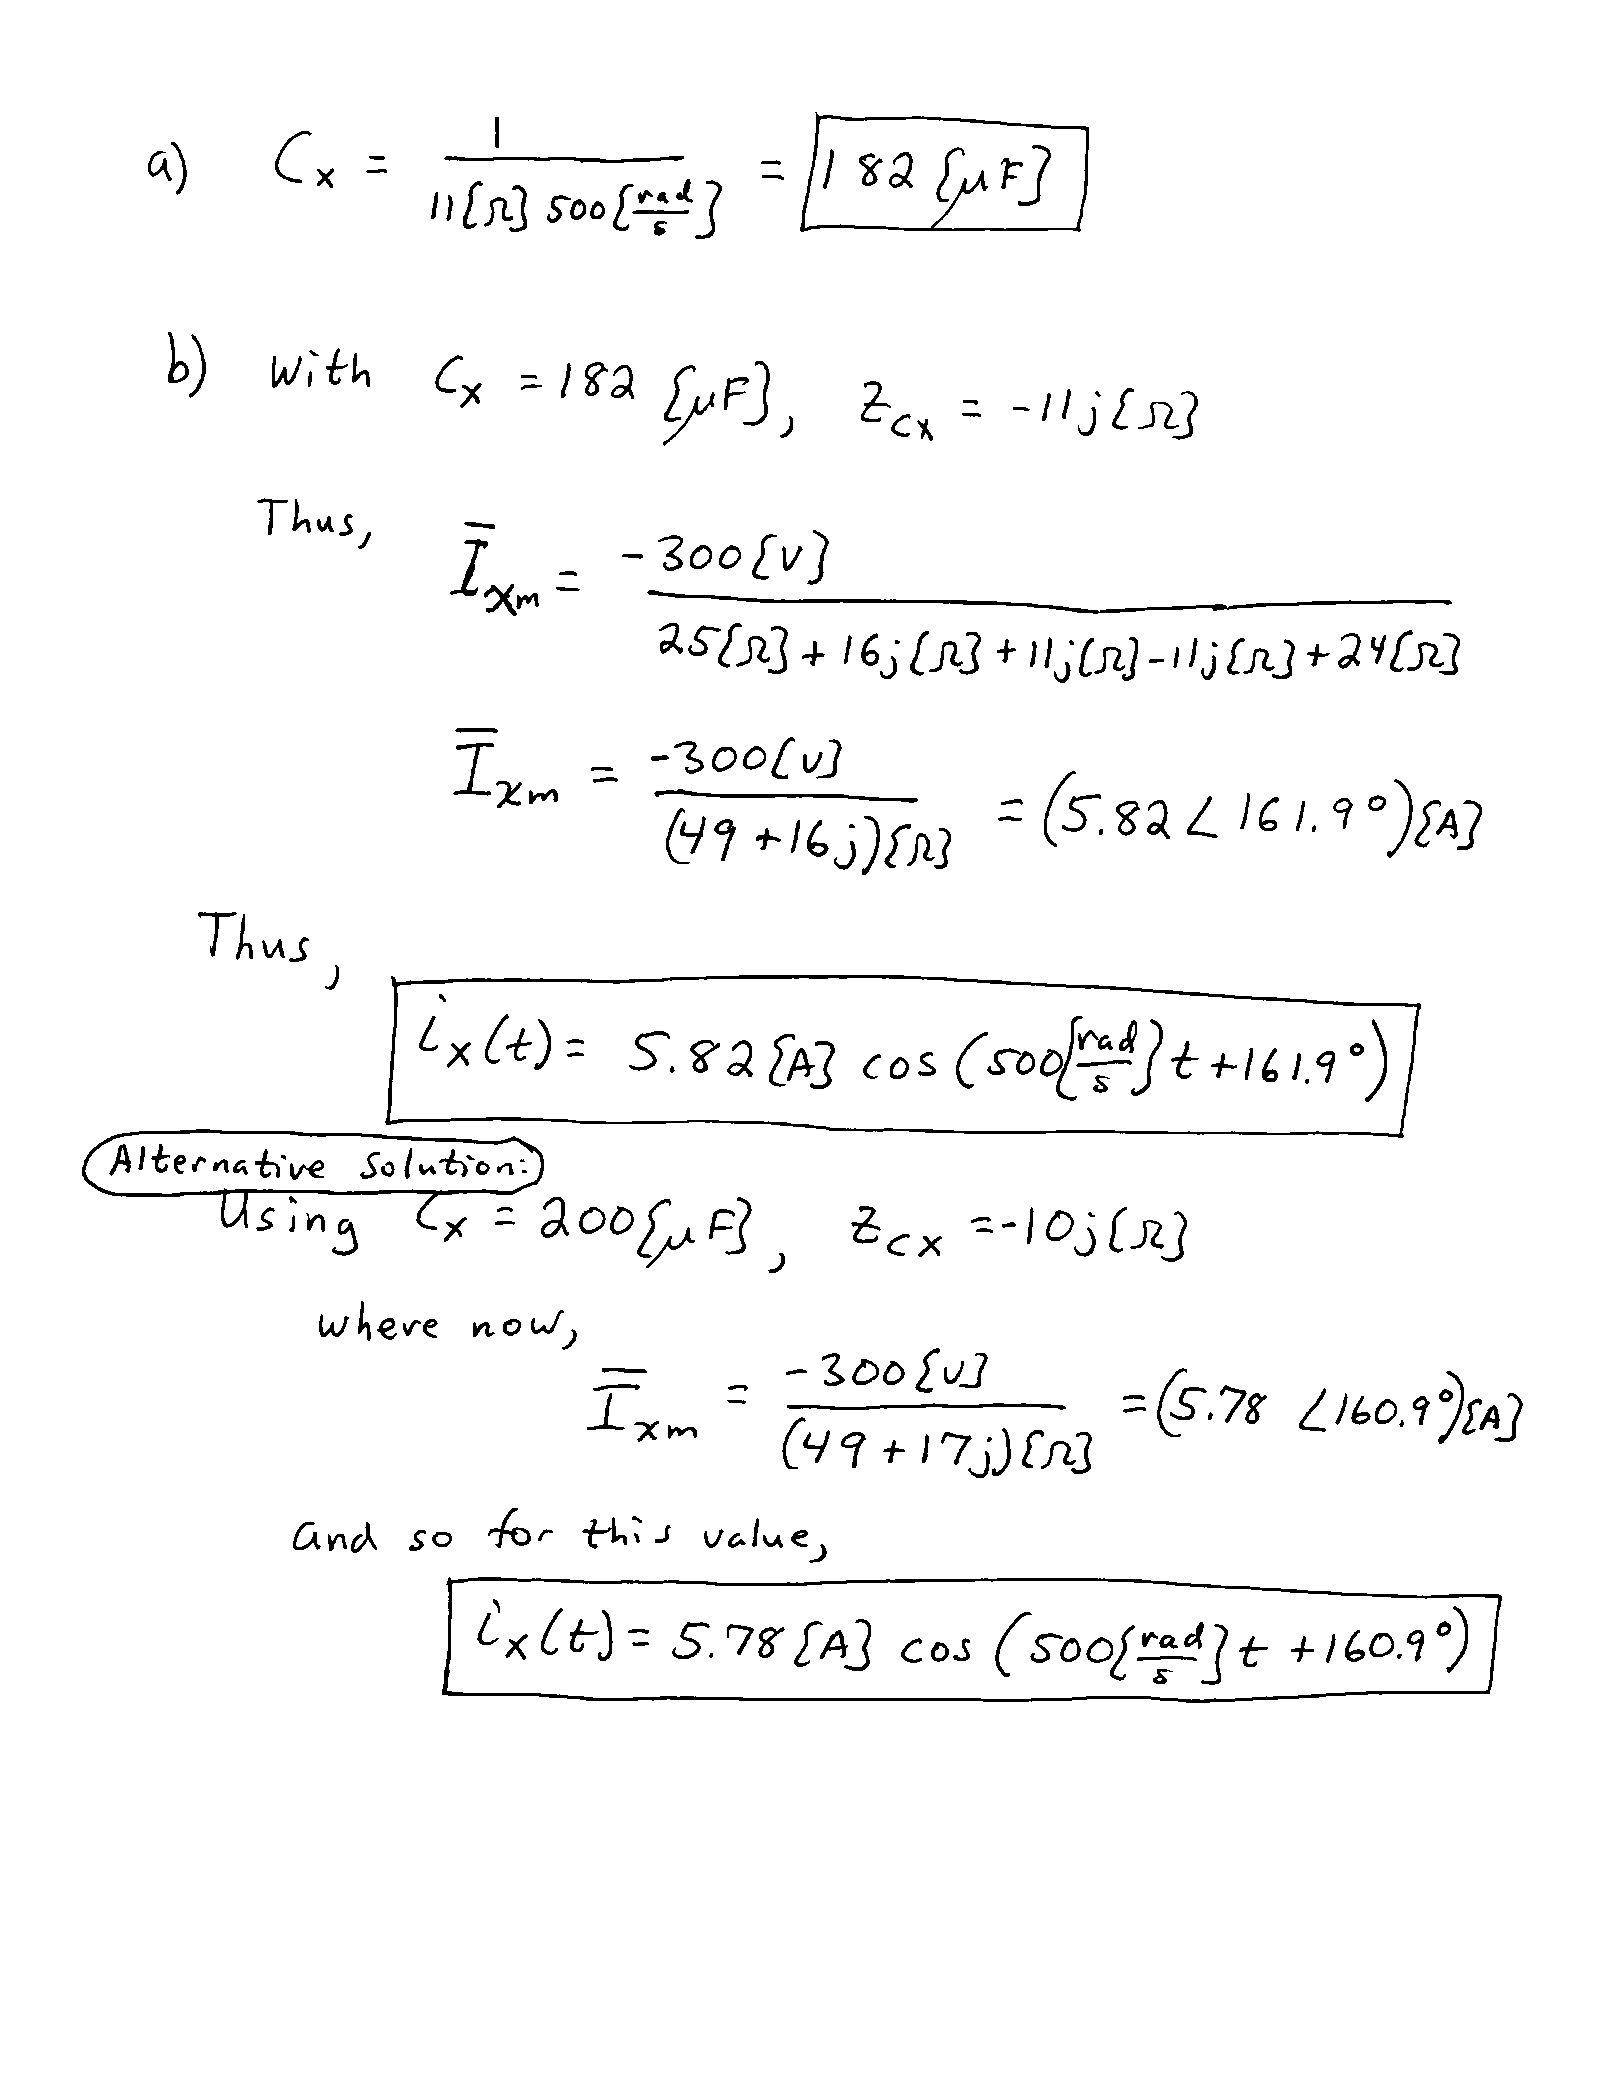 a) Cx = 1 / 11{Ω} 500{rad/s} = 182 {μF}
b) With Cx = 182 {μF}, Zcx = -11j{Ω}
Thus, Īxm = -300{V} / 25{Ω} + 16j{Ω} + 11j{Ω} - 11j{Ω} + 24{Ω}
Īxm = -300{V} / (49 + 16j){Ω} = (5.82 ∠ 161.9°){A}
Thus,
ix(t) = 5.82{A} cos(500{rad/s}t + 161.9°)
Alternative Solution:
Using Cx = 200{μF}, Zcx = -10j{Ω}
where now,
Īxm = -300{V} / (49 + 17j){Ω} = (5.78 ∠160.9°){A}
and so for this value,
ix(t) = 5.78{A} cos(500{rad/s}t + 160.9°)